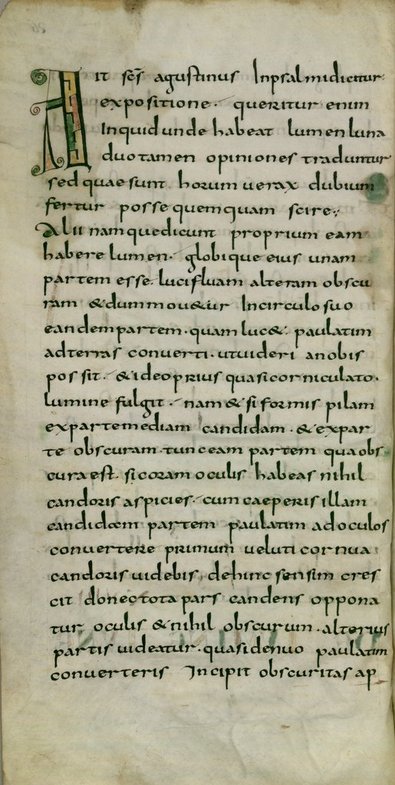 Ait scs agustinus Inpsalmidicitur
expositione. queritur enim
Inquid unde habeat lumen luna
duo tamen opiniones traduntur
sed quae sunt horum uerax dubium
fertur posse quemquam scire;
Alii namque dicunt proprium eam
habere lumen. globique eius unam
partem esse lucifluam alteram obscu
ram & dum mou&ur In circulo suo
eandem partem. quam luc&. paulatim
ad terras converti. ut uideri a nobis
possit. & ideo prius quasi corniculato.
lumine fulgit. nam & si formis pilam
ex parte mediam candidam. & ex par
te obscuram. tunc eam partem qua obs
cura est. si coram oculis habeas nihil
candoris aspicies. cum caeperis illam
candidam partem paulatim ad oculos
convertere primum veluti cornua
candoris uidebis dehinc sensim cres
cit donec tota pars candens oppona
tur oculis & nihil obscurum. alterius
partis uideatur. quasi denuo paulatim
converteris Incipit obscuritas ap